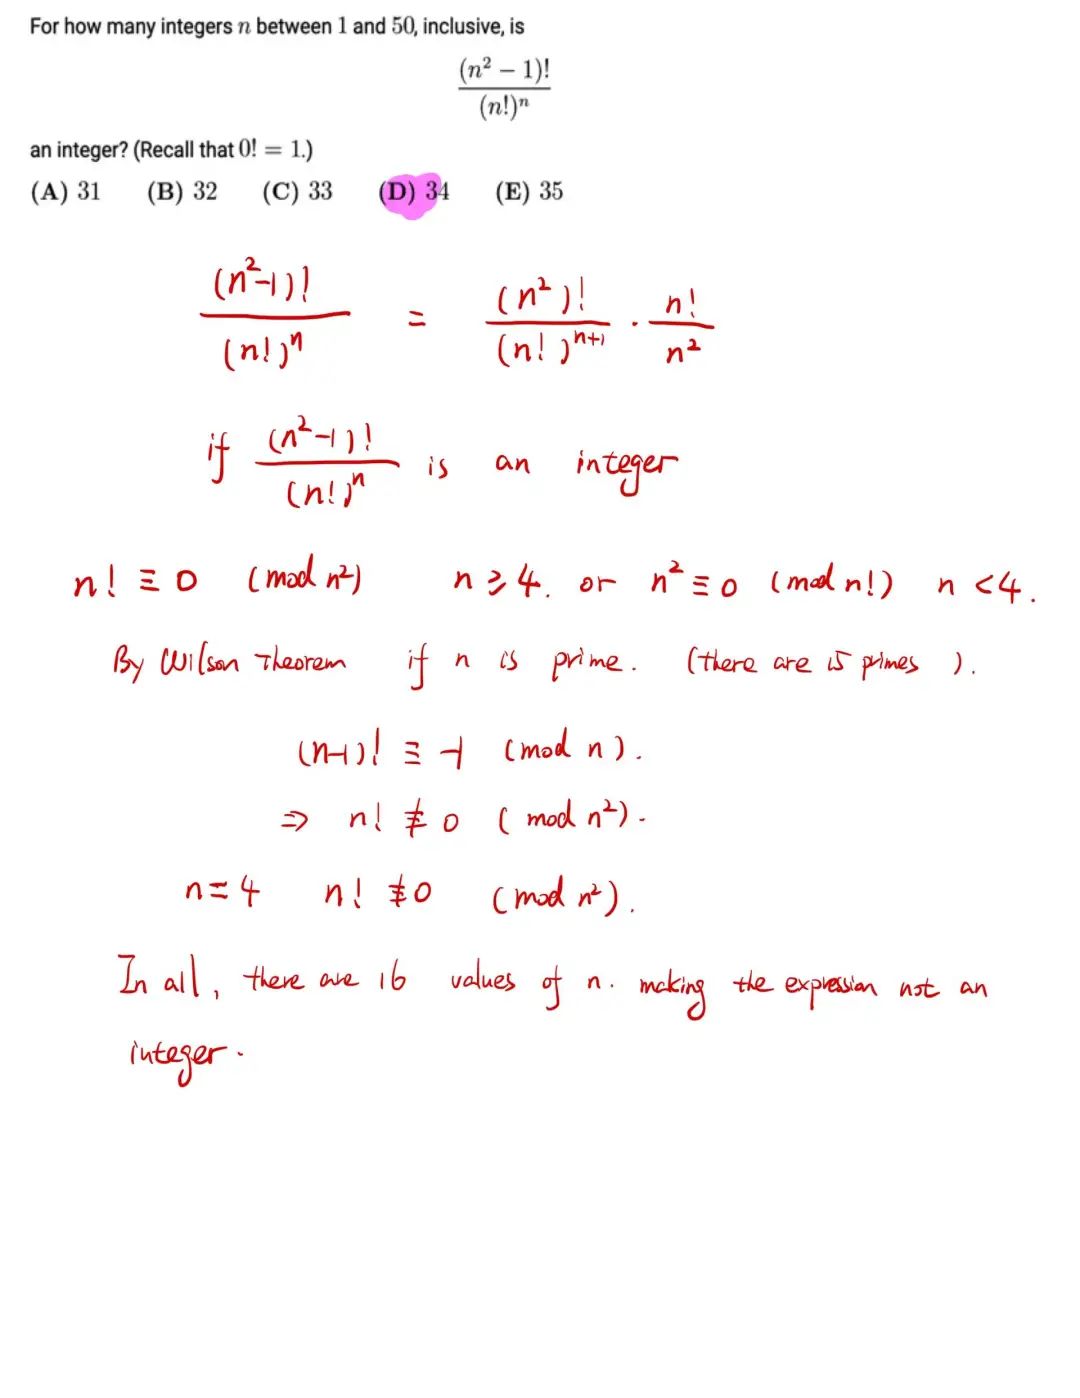 For how many integers n between 1 and 50, inclusive, is
(n² − 1)!
(n!)ⁿ
an integer? (Recall that 0! = 1.)
(A) 31 (B) 32 (C) 33 (D) 34 (E) 35
(n²-1)! / (n!)ⁿ = (n²)! / (n!)ⁿ⁺¹ · n! / n²
if (n²-1)! / (n!)ⁿ is an integer
n! ≡ 0 (mod n²) n ⩾ 4. or n² ≡ 0 (mod n!) n < 4.
By Wilson Theorem if n is prime. (there are 15 primes ).
(n-1)! ≡ -1 (mod n).
⇒ n! ≢ 0 (mod n²).
n = 4 n! ≢ 0 (mod n²).
In all, there are 16 values of n. making the expression not an
integer.